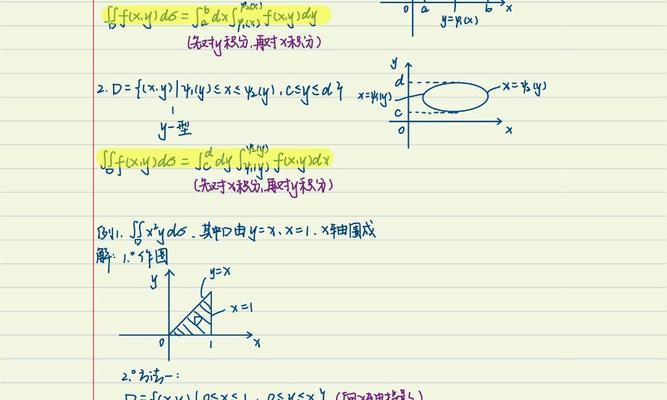 ∬f(x,y)dσ = ∫ₐᵇdx∫f(x,y)dy
D
(先对y积分,再对x积分)
0 a b x
y=φ₁(x)
2. D={(x,y)|ψ₁(y)≤x≤ψ₂(y), c≤y≤d}
y-型
y
d
x=ψ₁(y)
x=ψ₂(y)
c
0 x
∬f(x,y)dσ = ∫dy∫f(x,y)dx
D c d ψ₁(y) ψ₂(y)
(先对x积分,再对y积分)
例1. ∬x²ydσ. 其中D由y=x、x=1、x轴围成
D
解: 1.° 作图
y
y=x
x=1
D
0 1 x
2.° 方法一:
D={(x,y)|0≤x≤1, 0≤y≤x}